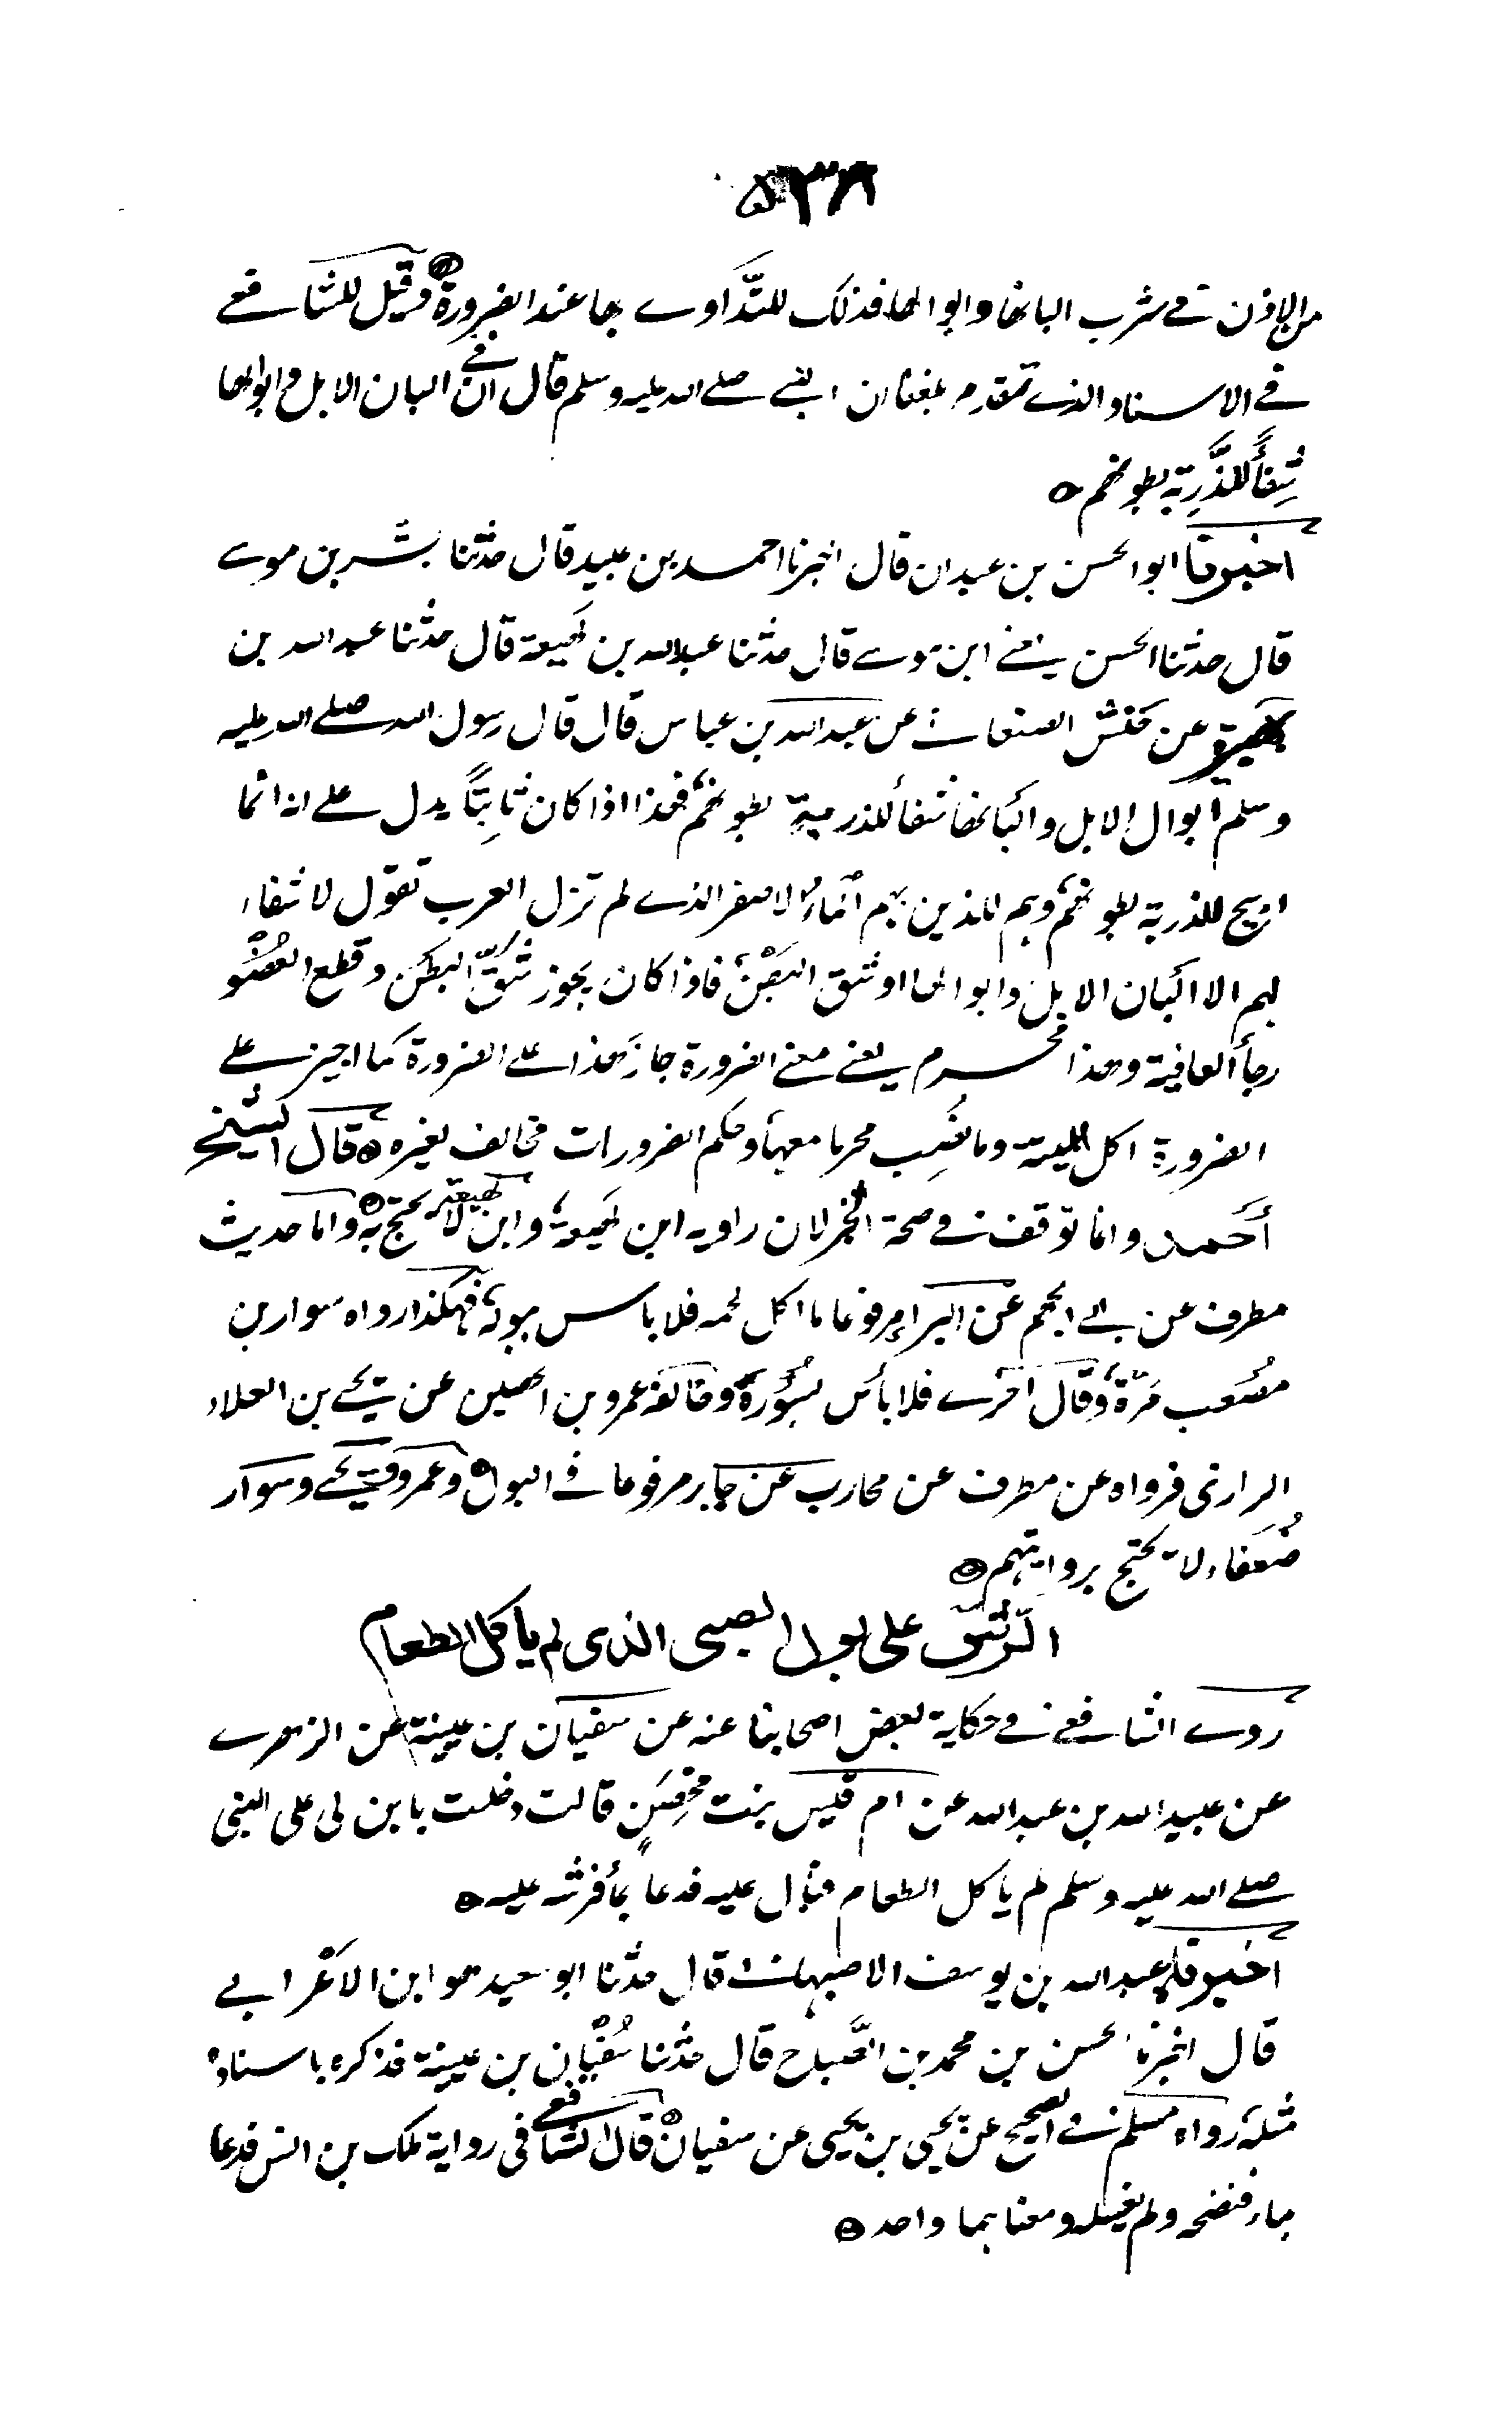 ٥٣٨
من الاذن فى شرب البانها وابوالها فذلك للتَّداوى بها عند الضرورة وقيل للشافعى
فى الاسناد الذى تقدم بلغنا ان النبى صلى الله عليه وسلم قال ان فى البان الابل وابوالها
شِفَأً للذَّرِبة بطونهم ه
اخبرنا ابو الحسن بن عبدان قال اخبرنا احمد بن عبيد قال حدثنا بشر بن موسى
قال حدثنا الحسن يعنى ابن موسى قال حدثنا عبد الله بن لهيعة قال حدثنا عبد الله بن
هبيرة عن حنش الصنعانى عن عبد الله بن عباس قال قال رسول الله صلى الله عليه
وسلم ابوال الابل والبانها شفأ للذربة بطونهم فهذا اذا كان ثابِتاً يدل على انه انما
ابيح للذربة بطونهم وهم الذين بهم الماء الاصفر الذى لم تزل العرب تقول لا شفاء
لهم الا البان الابل وابوالها او شق البَطْن فاذا كان يجوز شَقّ البطن وقطع العُضْو
رجأ العافية وهذا محرم يعنى معنى الضرورة جاز هذا على الضرورة كما اجيز على
الضرورة اكل الميتة وما نُسِب محرما معها وحكم الضرورات مخالف لغيره ه قال الشيخ
أحمد وانما توقف فى صحة الخبر لان راويه ابن لهيعة وابن لهيعة لا يحتج به ه واما حديث
مطرف عن ابى الجهم عن البراء مرفوعا ما اكل لحمه فلا باس ببوله فهكذا رواه سوار بن
مصعب مَرّة وقال اخرى فلا بأس بسُؤْره وخالفه عمرو بن الحصين عن يحيى بن العلاء
الرازى فرواه عن مطرف عن محارب عن جابر مرفوعا فى البول وعمرو ويحيى وسوار
ضُعَفاء لا يحتج بروايتهم ه
الرَّشّ على بول الصبى الذى لم ياكل الطعام
روى الشافعى فى حكاية بعض اصحابنا عنه عن سفيان بن عيينة عن الزهرى
عن عبيد الله بن عبد الله عن ام قيس بنت محصن قالت دخلت بابن لى على النبى
صلى الله عليه وسلم لم ياكل الطعام فبال عليه فدعا بمأ فرشه عليه ه
اخبرناه عبد الله بن يوسف الاصبهانى قال حدثنا ابو سعيد هو ابن الاعرابى
قال اخبرنا الحسن بن محمد بن الصَّباح قال حدثنا سُفْيان بن عيينة فذكره باسناده
مثله رواه مسلم فى الصحيح عن يحيى بن يحيى عن سفيان ه قال الشافعى فى رواية ملك بن انس فدعا
بماء فنضحه ولم يغسله ومعناهما واحد ه